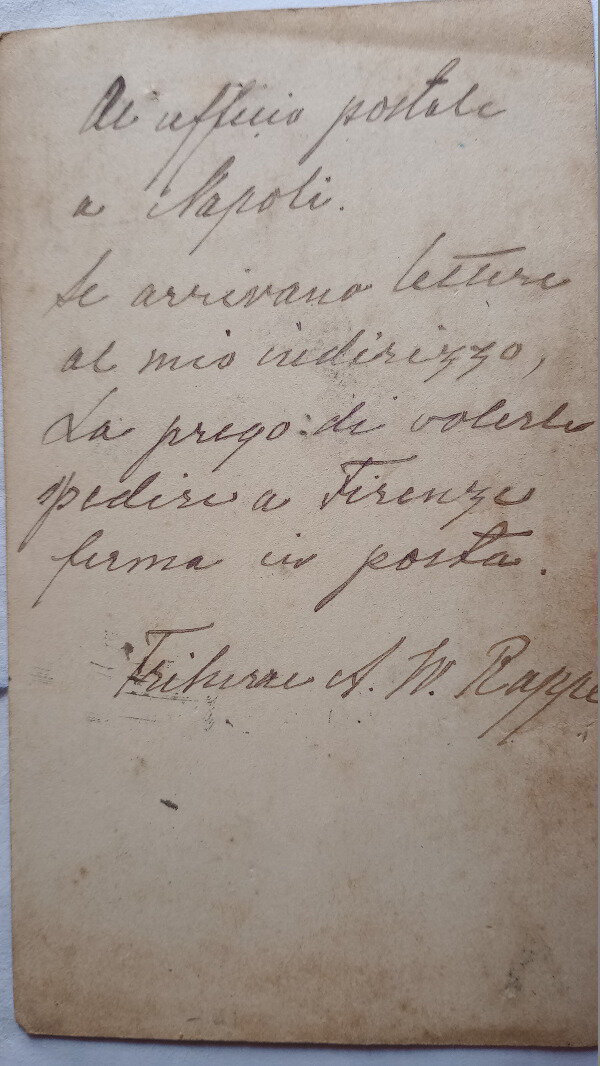 Al ufficio postale
a Napoli.
Se arrivano lettere
al mio indirizzo,
La prego di volerle
spedire a Firenze
ferma in posta.
A. W. Rappe